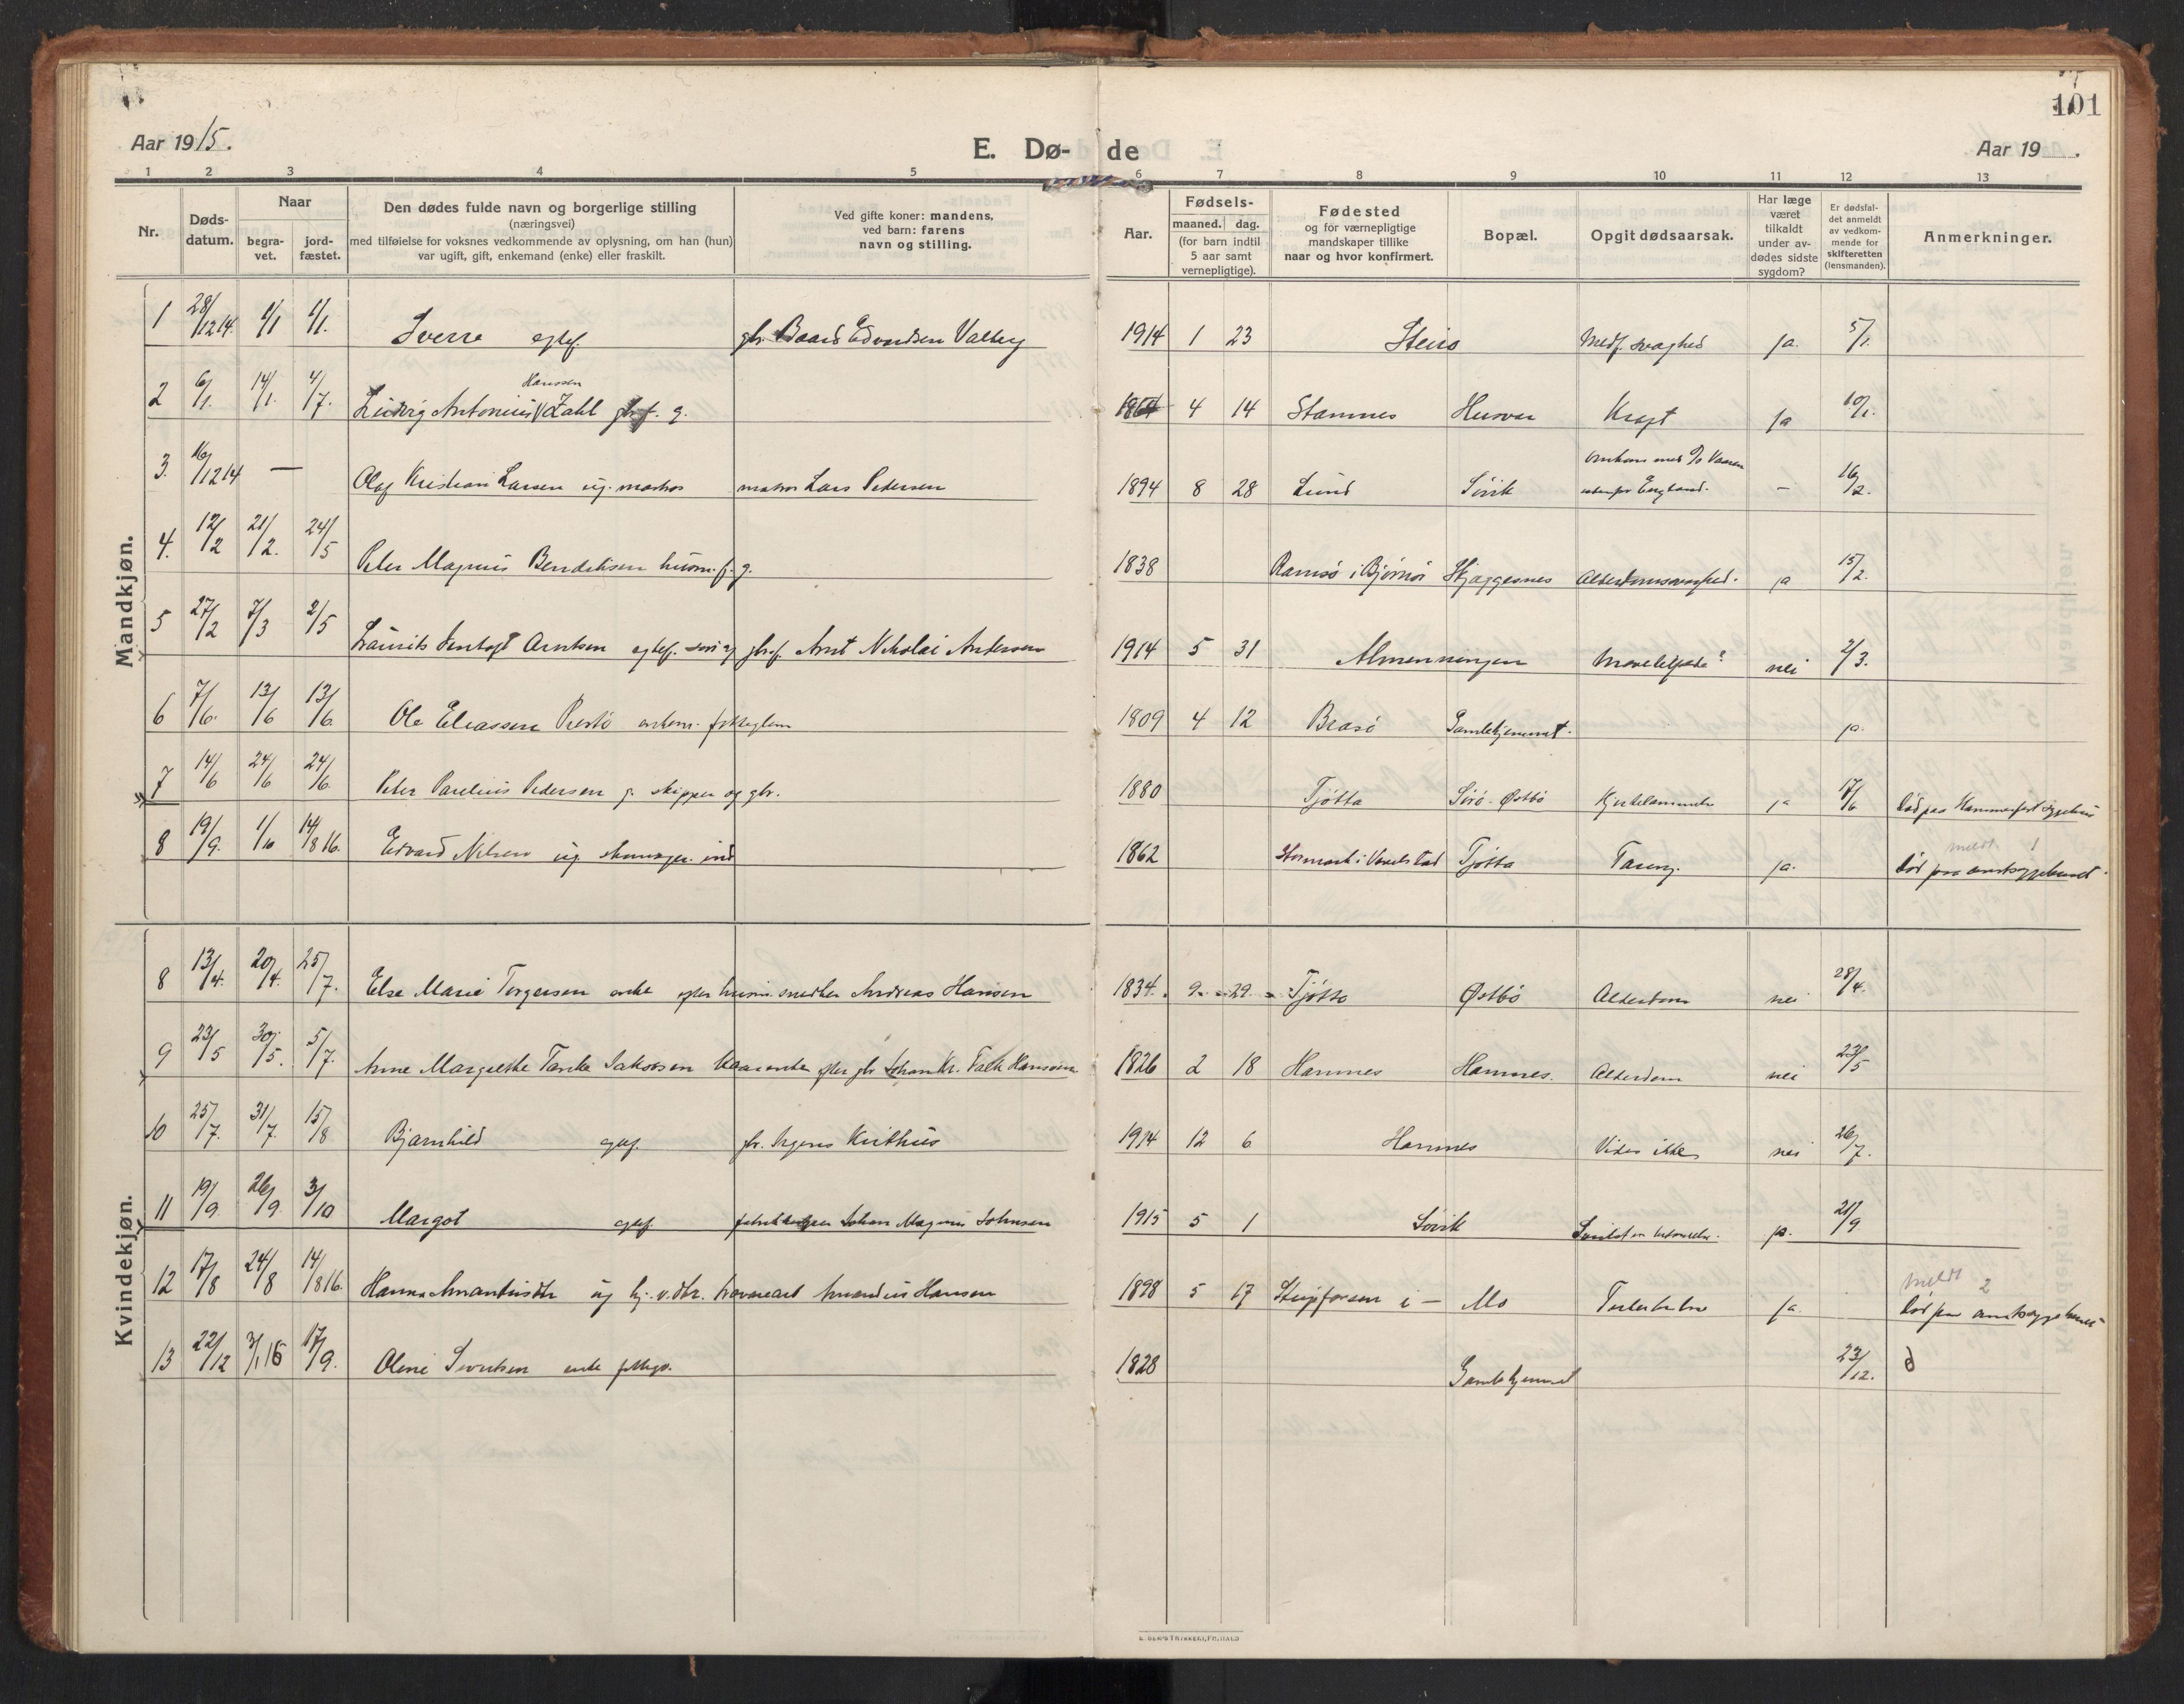 101
Aar 1915.
E. Dø-de
Aar 19
1 2 3 4 5 6 7 8 9 10 11 12 13
Nr.
Døds-
datum.
Naar
begra-
vet.
jord-
fæstet.
Den dødes fulde navn og borgerlige stilling
(næringsvei)
med tilføielse for voksnes vedkommende av oplysning, om han (hun)
var ugift, gift, enkemand (enke) eller fraskilt.
Ved gifte koner: mandens,
ved barn: farens
navn og stilling.
Aar.
Fødsels-
maaned. dag.
(for barn indtil
5 aar samt
vernepligtige).
Fødested
og for værnepligtige
mandskaper tillike
naar og hvor konfirmert.
Bopæl.
Opgit dødsaarsak.
Har læge
været
tilkaldt
under av-
dødes sidste
sygdom?
Er dødsfal-
det anmeldt
av vedkom-
mende for
skifteretten
(lensmanden).
Anmerkninger.
Mandkjøn.
1 28/12 14. 1/1 1/1. Sverre egtef. gbr. Baard Edvardsen Valberg 1914 1 23 Steiro Medf. svaghed ja. 5/1.
Hanssen
2 6/1. 14/1. 4/7. Ludvig Antonius Zahl gbr. f. g. 4 14 Stamnes Husvær Kræft ja 10/1.
3. 16/12 14 — Olaf Kristian Larsen ug. matros matros Lars Pedersen 1894 8 28 Lund Søvik Omkom med D/S Vaaren
utenfor England. – 16/2.
4. 12/2 21/2. 24/5 Peter Magnus Bendiksen husm. f. g. 1838 Ramsö i Bjørnör Skjæggesnes Alderdomssvaghed. ja 15/2.
5 27/2 7/3 2/5 Laurits Arntsen egtef. gbrf. Arnt Nikolai Andersen 1914 5 31 Almenningen nei 2/3.
6 7/6. 13/6 13/6. Ole Eliassen enkem. 1809 4 12 Brasö Gamlehjemmet. ja.
7 14/6 24/6 24/6. Peter Parelius Pedersen g. skipper og gbr. 1880 Tjøtta Sörö-Østbö ja 17/6 Död paa Hammerfest sygehus
8 19/9. 1/10 14/8 16. Edvard Nilsen ug. ind 1862 i Vevelstad Tjøtta Tæring. ja. meldt 1
död paa amtssygehuset.
Kvindekjøn.
8 13/4. 20/4. 25/7. Else Marie Torgersen enke efter husm. snedker Andreas Hansen 1834. 9. 29. Tjøtta Østbö Alderdom nei 28/4.
9 23/5 30/5. 5/7. Anne Margrethe Jakobsen kaarenke efter gbr Johan Kr. Falk Hansen 1826 2 18 Hamnes Hamnes. Alderdom nei 23/5
10 25/7. 31/7. 15/8 Bjarnhild egtef. gbr. Kvithus 1914 12 6 Hamnes Vides ikke nei 26/7.
11 19/9. 26/9. 3/10 Margot egtef. Johan Magnus Johnsen 1915 5 1 Søvik ja. 21/9
12 17/8 24/8 14/8 16. Hanna Amandusdtr ug hj. v. dtr. Amandus Hansen 1898 5 17 i — Mo Tuberkulose ja. meldt 2
död paa amtssygehuset
13 22/12 3/1 16 17/9. Oline Sivertsen enke 1828 Gamlehjemmet 23/12. d